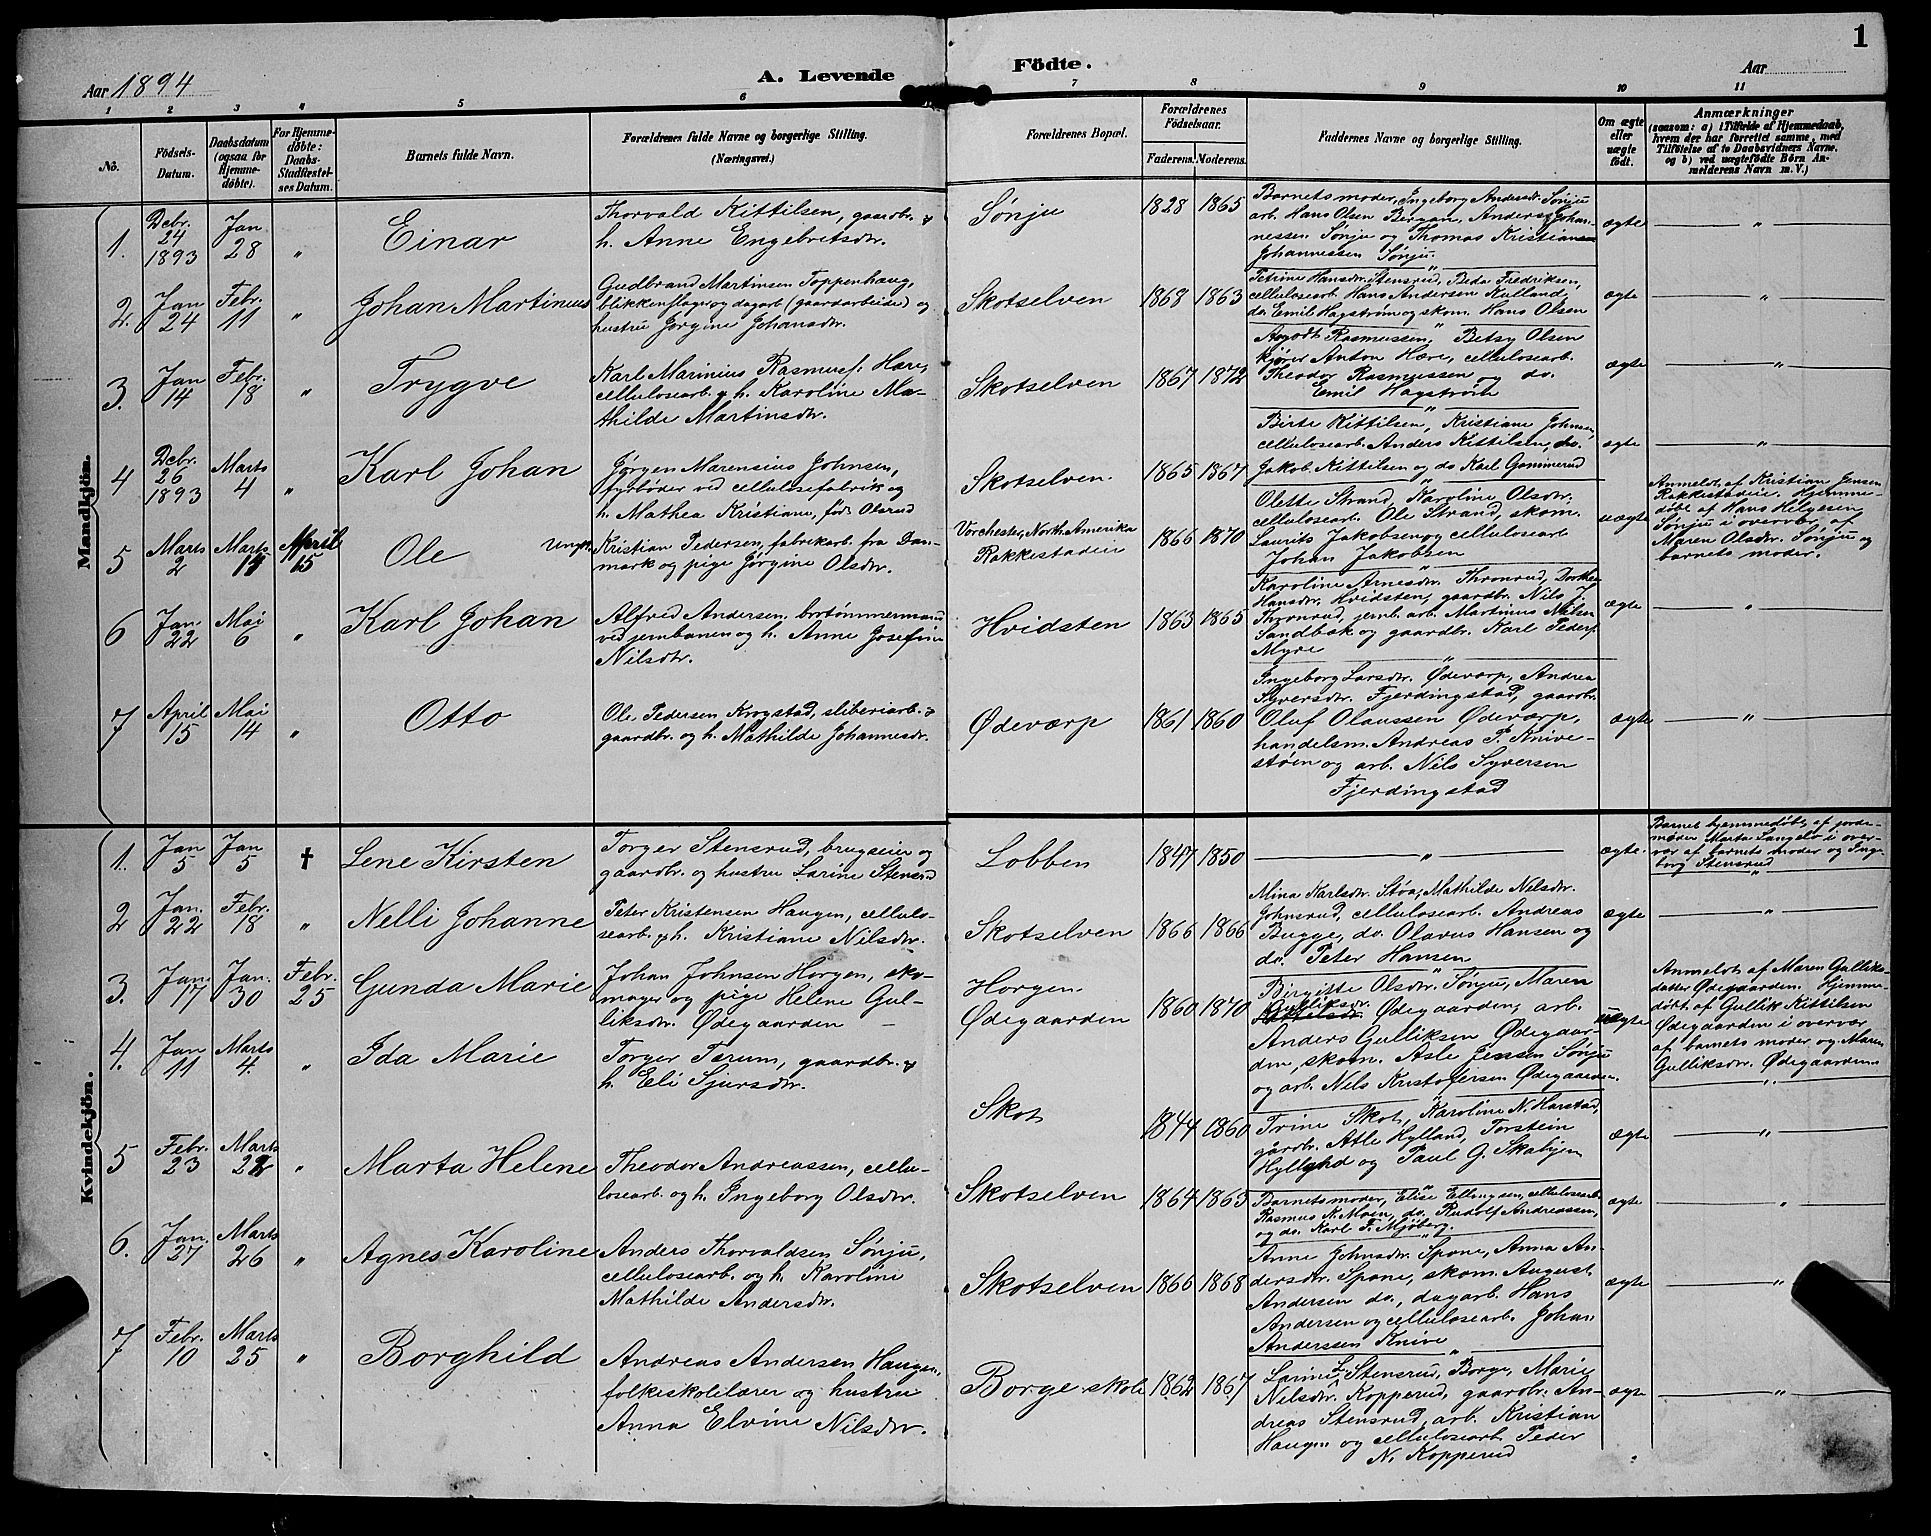 1
Aar 1894
A. Levende Födte.
Aar
1 2 3 4 5 6 7 8 9 10 11
No.
Födsels-
Datum.
Daabsdatum
(ogsaa for
Hjemme-
døbte).
For Hjemme-
døbte:
Daabs-
Stadfæstel-
ses Datum.
Barnets fulde Navn.
Forældrenes fulde Navne og borgerlige Stilling.
(Næringsvei.)
Forældrenes Bopæl.
Forældrenes
Födselsaar.
Faderens. Moderens.
Faddernes Navne og borgerlige Stilling.
Om ægte
eller
uægte
födt.
Anmærkninger
(saasom: a) i Tilfælde af Hjemmedaab,
hvem der har forrettet samme, med
Tilföielse af to Daabsvidners Navne,
og b) ved uægtefödte Börn An-
melderens Navn m. V.)
Mandkjön.
1.
Debr.
24
1893
Jan
28
"
Einar
Thorvald Kittilsen, gaardbr. &
h. Anne Engebretsdr.
Sønju
1828 1865
Barnets moder, Ingeborg Andersdr. Sønju
arb. Hans Olsen Bergan, Anders Johan-
nessen Sønju og Thomas Kristian
Johannessen Sønju.
ægte
"
2.
Jan
24
Febr.
11
"
Johan Martinus
Gudbrand Martinsen Toppenhaug,
blikkenslager og dagarb (gaardarbeide) og
hustru Jørgine Johansdr.
Skotselven
1868 1863
Petrine Hansdr. Stensrud, Beda Fredriksen,
cellulosearb. Hans Andersen Hulland,
do. Emil Hagstrøm og skom. Hans Olsen
ægte
"
3.
Jan
14
Febr.
18
"
Trygve
Karl Marinius Rasmuss. Hære,
cellulosearb. & h. Karoline Ma-
thilde Martinsdr.
Skotselven
1867 1872
Rasmussen, Betsy Olsen
kjører Anton Hære, cellulosearb.
Theodor Rasmussen og do.
Emil Hagstrøm
ægte
"
4
Debr.
26
1893
Marts
4
"
Karl Johan
Jørgen Marensius Johnsen,
fyrbøder ved cellulosefabrik og
h. Mathea Kristiane, født Olsrud
Skotselven.
1865 1867
Birte Kittilsen, Kristiane Johnsen,
cellulosearb. Anders Kittilsen, do.
Jakob Kittilsen og do Karl Gommerud
ægte
"
5
Marts
2
Marts
17
April
15
Ole
Ungk. Kristian Pedersen, fabrikarb. fra Dan-
mark og pige Jørgine Olsdr.
Vorchester, North. Amerika
Rakkestadeie
1866 1870
Olette Strand, Karoline Olsdr.
cellulosearb. Ole Strand, skom.
Laurits Jakobsen og cellulosearb
Johan Jakobsen
uægte
Anmeldt af Kristian Jensen
Rakkestadeie. Hjemme-
døbt af Hans Helgesen
Sønju i overvær af
Maren Olsdr. Sønju og
barnets moder.
6
Jan
22
Mai
6
"
Karl Johan
Alfred Andersen, brotømmermand
ved jernbanen og h. Anne Josefine
Nilsdr.
Hvidsten
1863 1865
Karoline Arnesdr. Thronrud, Dorthe
Hansdr. Hvidsten, gaardbr. Nils J.
Thronrud, jernb. arb. Martinus Nilsen
Sandbæk og gaardbr. Karl Peders.
Myre
ægte
"
7
April
15
Mai
14
"
Otto
Ole Pedersen Krogstad, sliberiarb. &
gaardbr. og h. Mathilde Johannesdr.
Ødeværp
1861 1860
Ingeborg Larsdr. Ødeværp, Andrea
Syversdr. Fjerdingstad, gaardbr.
Oluf Olaussen Ødeværp,
handelsm. Andreas P. Knive-
støen og arb. Nils Syversen
Fjerdingstad
ægte
"
Kvindekjön.
1.
Jan
5
Jan
5
†
Lene Kirsten
Torger Stensrud, brugseier og
gaardbr. og hustru Larine Stensrud
Lobben
1847 1850
"
ægte.
Barnet hjemmedøbt af jorde-
moder Marta Langelo i over-
vær af barnets moder og Inge-
borg Stensrud
2
Jan.
22
Febr.
18
"
Nelli Johanne
Peter Kristensen Haugen, cellulo-
searb. & h. Kristiane Nilsdr.
Skotselven
1866 1866
Mina Karlsdr. Støa, Mathilde Nilsdr.
Johnsrud, cellulosearb. Andreas
Bugge, do. Olavus Hansen og
do. Peter Hansen
ægte
"
3.
Jan
17
Jan.
30
Febr.
25
Gunda Marie
Johan Johnsen Horgen, sko-
mager og pige Helene Gul-
liksdr. Ødegaarden
Horgen
Ødegaarden
1860 1870
Birgitte Olsdr. Sønju, Maren
Gulliksdr. Ødegaarden, arb.
Anders Gulliksen Ødegaar-
den, skom. Asle Jenssen Sønju
og arb. Nils Kristofersen Ødegaarden.
uægte
Anmeldt af Maren Gulliks-
datter Ødegaarden. Hjemme-
døbt af Gullik Kittilsen
Ødegaarden i overvær
af barnets moder og Maren
Gulliksdr. Ødegaarden.
4.
Jan
11
Marts
4.
"
Ida Marie
Torger Terum, gaardbr. &
h. Eli Sjursdr.
Skot
1844 1860
Trine Skot, Karoline N. Harstad,
gårdbr. Atle Hylland, Torstein
Hylland og Paul G. Skabjen
ægte
"
5
Febr.
23
Marts
"
Marta Helene
Theodor Andreassen, cellu-
losearb. og h. Ingeborg Olsdr.
Skotselven
1864 1863
Barnets moder, Elise Ellingsen, cellulosearb.
Rasmus N. Moen, do. Rudolf Andreassen,
og do. Karl F. Mjøberg.
ægte
"
6.
Jan.
27
Marts
26
"
Agnes Karoline
Anders Thorvaldsen Sønju,
cellulosearb. og h. Karoline
Mathilde Andersdr.
Skotselven
1866 1868
Anne Johnsdr. Spone, Anna An-
dersdr. Spone, skom. August
Andersen do., dagarb. Hans
Andersen og cellulosearb. Johan
Anderssen Knive
ægte
"
7
Febr.
10
Marts
25
"
Borghild
Andreas Andersen Haugen,
folkeskolelærer og hustru
Anna Elvine Nilsdr.
Borge skole
1862 1867
Larine L. Stensrud, Borge, Marie
Nilsdr. Kopperud, gaardbr. An-
dreas Stensrud, arb. Kristian
Haugen og cellulosearb. Peder
N. Kopperud
ægte
"